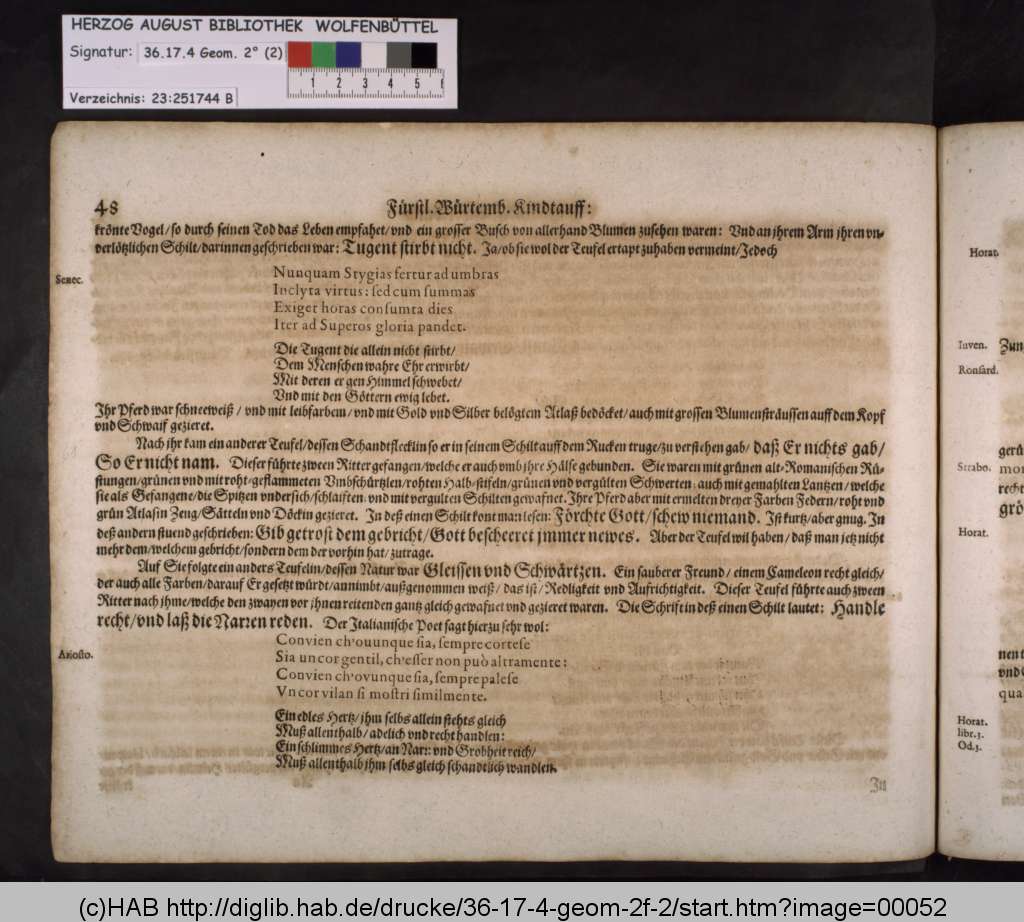 HERZOG AUGUST BIBLIOTHEK WOLFENBÜTTEL
Signatur: 36.17.4 Geom. 2° (2)
1 2 3 4 5 6
Verzeichnis: 23:251744 B
48 Fürstl. Würtemb. Kindtauff:
krönte Vogel/so durch seinen Tod das Leben empfahet/vnd ein grosser Busch von allerhand Blumen zusehen waren: Vnd an jhrem Arm jhren vn-
verlötzlichen Schilt/darinnen geschrieben war: Tugent stirbt nicht. Ja/ob sie wol der Teufel ertapt zuhaben vermeint/Jedoch
Senec.
Nunquam Stygias fertur ad umbras
Inclyta virtus: sed cum summas
Exiget horas consumta dies
Iter ad Superos gloria pandet.
Die Tugent die allein nicht stirbt/
Dem Menschen wahre Ehr erwirbt/
Mit deren er gen Himmel schwebet/
Vnd mit den Göttern ewig lebet.
Ihr Pferd war schneeweiß/vnd mit leibfarbem/vnd mit Gold vnd Silber belögtem Atlaß bedöcket/auch mit grossen Blumensträussen auff dem Kopf
vnd Schwaif gezieret.
Nach jhr kam ein anderer Teufel/dessen Schandtflecklin so er in seinem Schilt auff dem Rucken truge/zu verstehen gab/ daß Er nichts gab/
So Er nicht nam. Dieser führte zween Ritter gefangen/welche er auch vmb jhre Hälse gebunden. Sie waren mit grünen alt-Romanischen Rü-
stungen/grünen vnd mit roht/geflammeten Vmbschürtzlen/rohten Halb/stifeln/grünen vnd vergülten Schwerten: auch mit gemahlten Lantzen/welche
sie als Gefangene/die Spitzen vndersich/schlaiften: vnd mit vergulten Schilten gewafnet. Ihre Pferd aber mit ermelten dreyer Farben Federn/roht vnd
grün Atlasin Zeug/Sätteln vnd Döckin gezieret. In deß einen Schilt kont man lesen: Förchte Gott/schew niemand. Ist kurtz/aber gnug. In
deß andern stuend geschrieben: Gib getrost dem gebricht/Gott bescheeret jmmer newes. Aber der Teufel wil haben/daß man jetz nicht
mehr dem/welchem gebricht/sondern dem der vorhin hat/zutrage.
Auf Sie folgte ein anders Teufelin/dessen Natur war Gleissen vnd Schwärtzen. Ein sauberer Freund/einem Cameleon recht gleich/
der auch alle Farben/darauf Er gesetzt würdt/annimbt/außgenommen weiß/das ist/Redligkeit vnd Aufrichtigkeit. Dieser Teufel führte auch zween
Ritter nach jhme/welche den zwayen vor jhnen reitenden gantz gleich gewafnet vnd gezieret waren. Die Schrift in deß einen Schilt lautet: Handle
recht/vnd laß die Narren reden. Der Italianische Poet sagt hierzu sehr wol:
Ariosto.
Convien ch'ouunque sia, sempre cortese
Sia un cor gentil, ch'esser non può altramente:
Convien ch'ovunque sia, sempre palese
Vn cor vilan si mostri similmente.
Ein edles Hertz/jhm selbs allein stehts gleich
Muß allenthalb/adelich vnd recht handlen:
Ein schlimmes Hertz/an Narr: vnd Grobheit reich/
Muß allenthalb jhm selbs gleich schandtlich wandlen.
In
Horat.
Iuven. Zun
Ronsard.
gerü
Strabo. mor
recht
grö
Horat.
nen t
vnd
qua
Horat.
libr. 3.
Od. 3.
(c)HAB http://diglib.hab.de/drucke/36-17-4-geom-2f-2/start.htm?image=00052